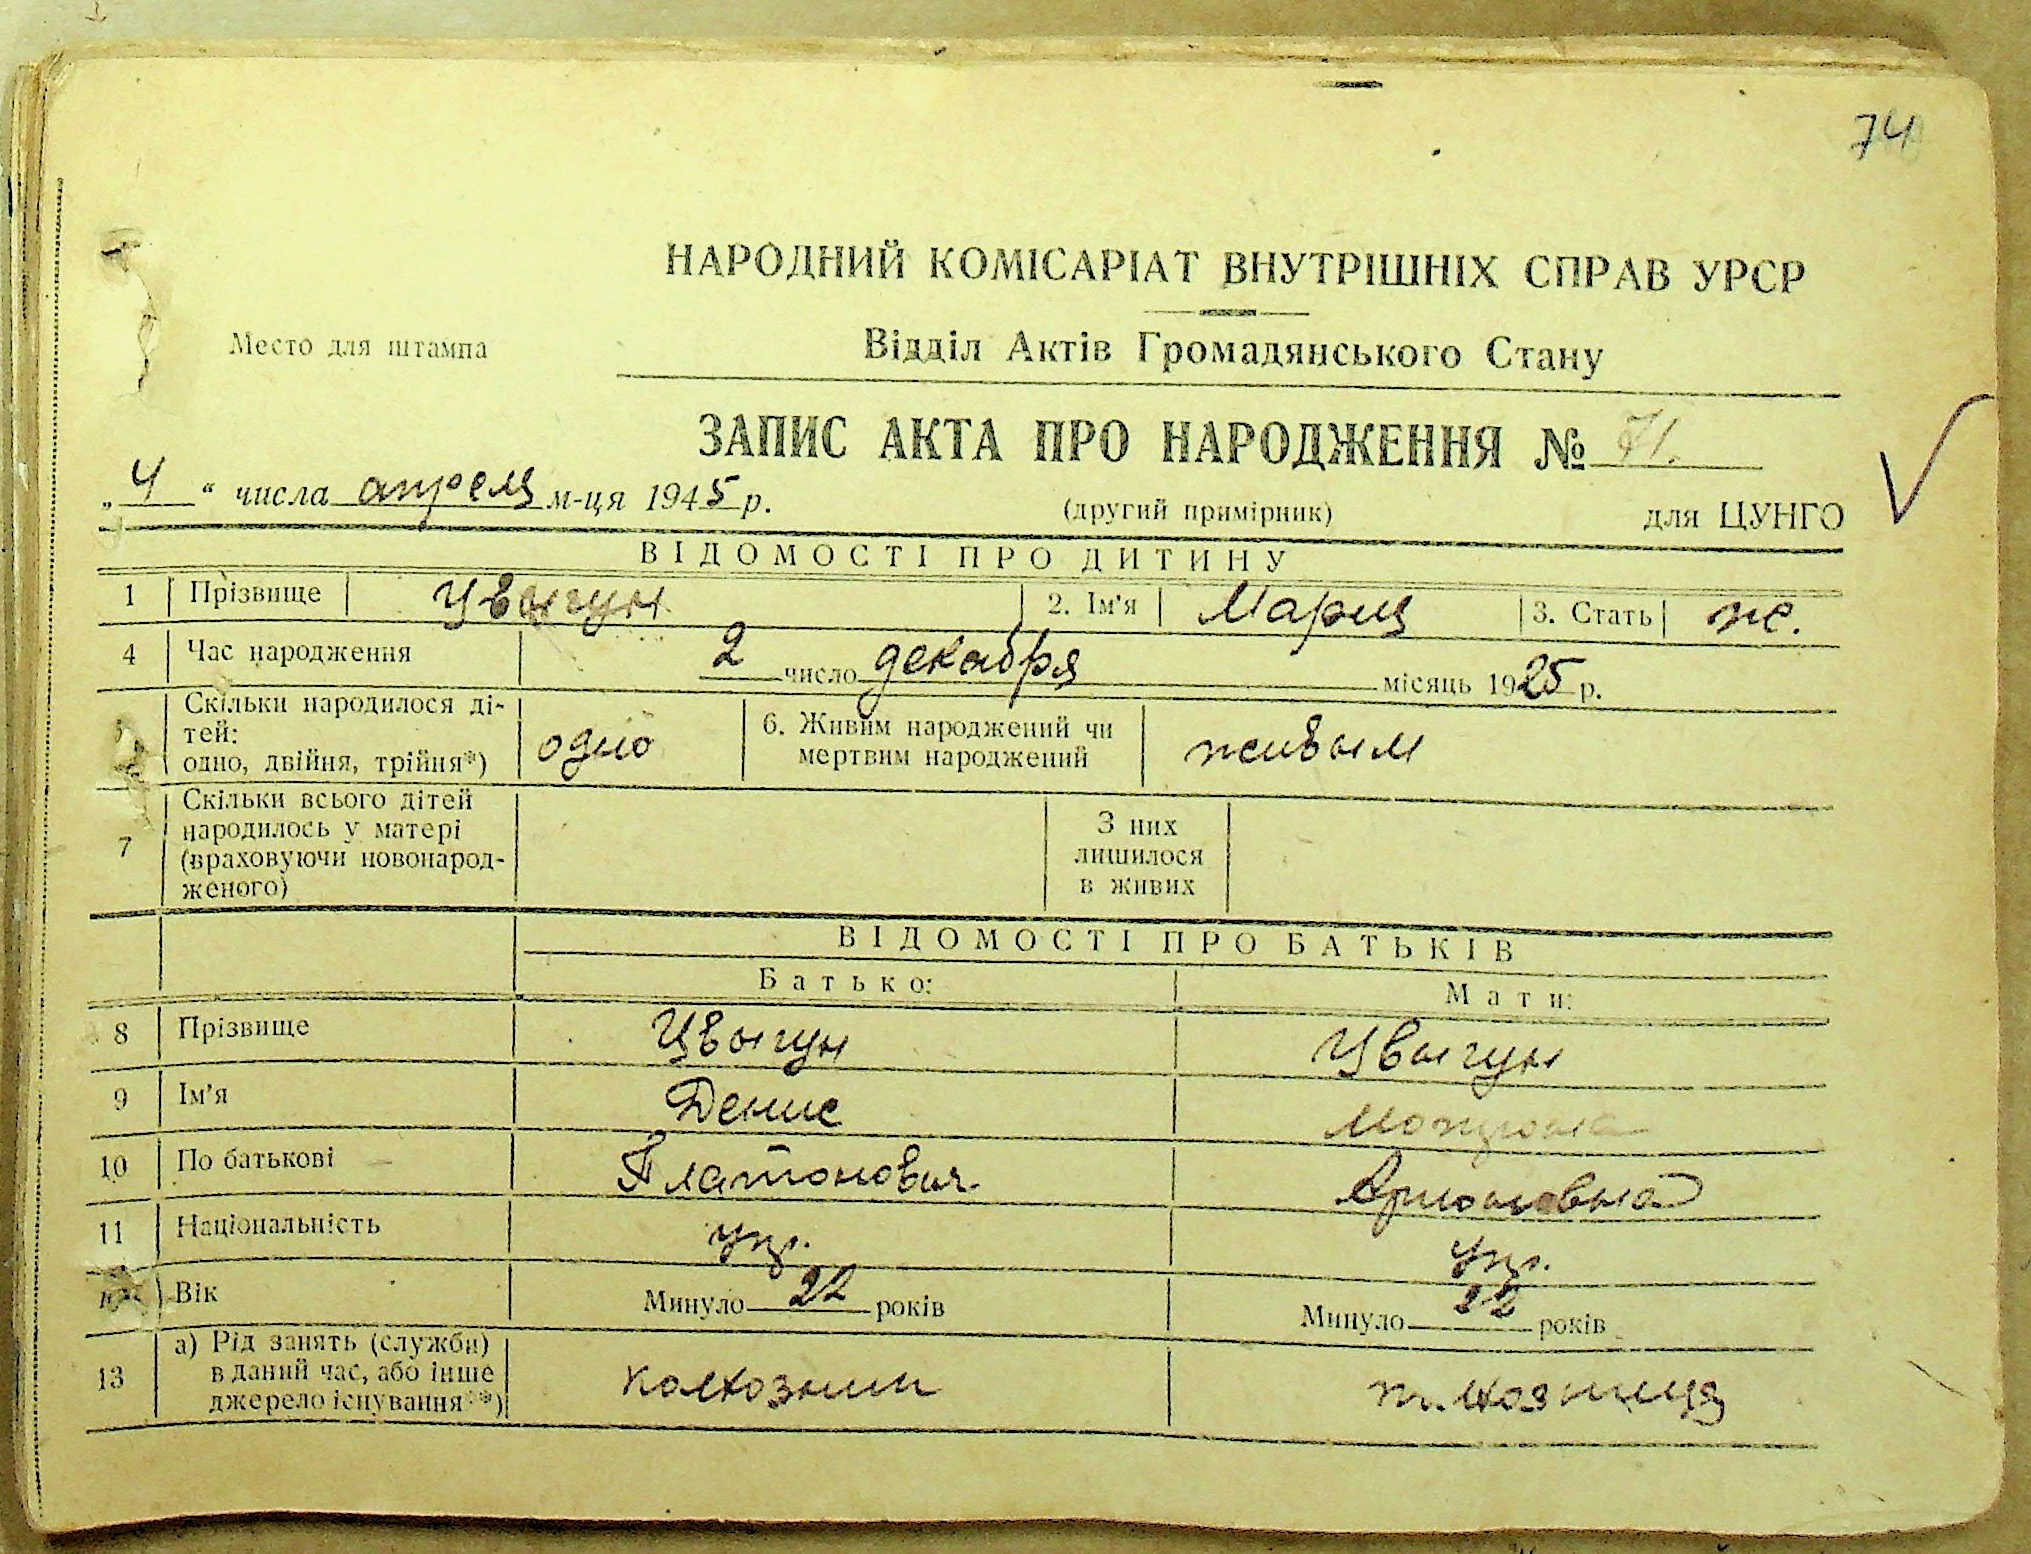 74
НАРОДНИЙ КОМІСАРІАТ ВНУТРІШНІХ СПРАВ УРСР
Место для штампа
Відділ Актів Громадянського Стану
ЗАПИС АКТА ПРО НАРОДЖЕННЯ № 71.
„ 4 “ числа апреля м-ця 1945 р.
(другий примірник) для ЦУНГО
ВІДОМОСТІ ПРО ДИТИНУ
1 Прізвище Цвыгун 2. Ім'я Мария 3. Стать ж.
4 Час народження 2 число декабря місяць 1925 р.
Скільки народилося ді-
тей:
одно, двійня, трійня*) одно
6. Живим народжений чи
мертвим народжений живым
7 Скільки всього дітей
народилось у матері
(враховуючи новонарод-
женого)
З них
лишилося
в живих
ВІДОМОСТІ ПРО БАТЬКІВ
Батько: Мати:
8 Прізвище Цвыгун Цвыгун
9 Ім'я Денис
10 По батькові Платонович
11 Національність укр. укр.
Вік Минуло 22 років Минуло 22 років
13 а) Рід занять (служби)
в даний час, або інше
джерело існування**) колхозник к.лхозница